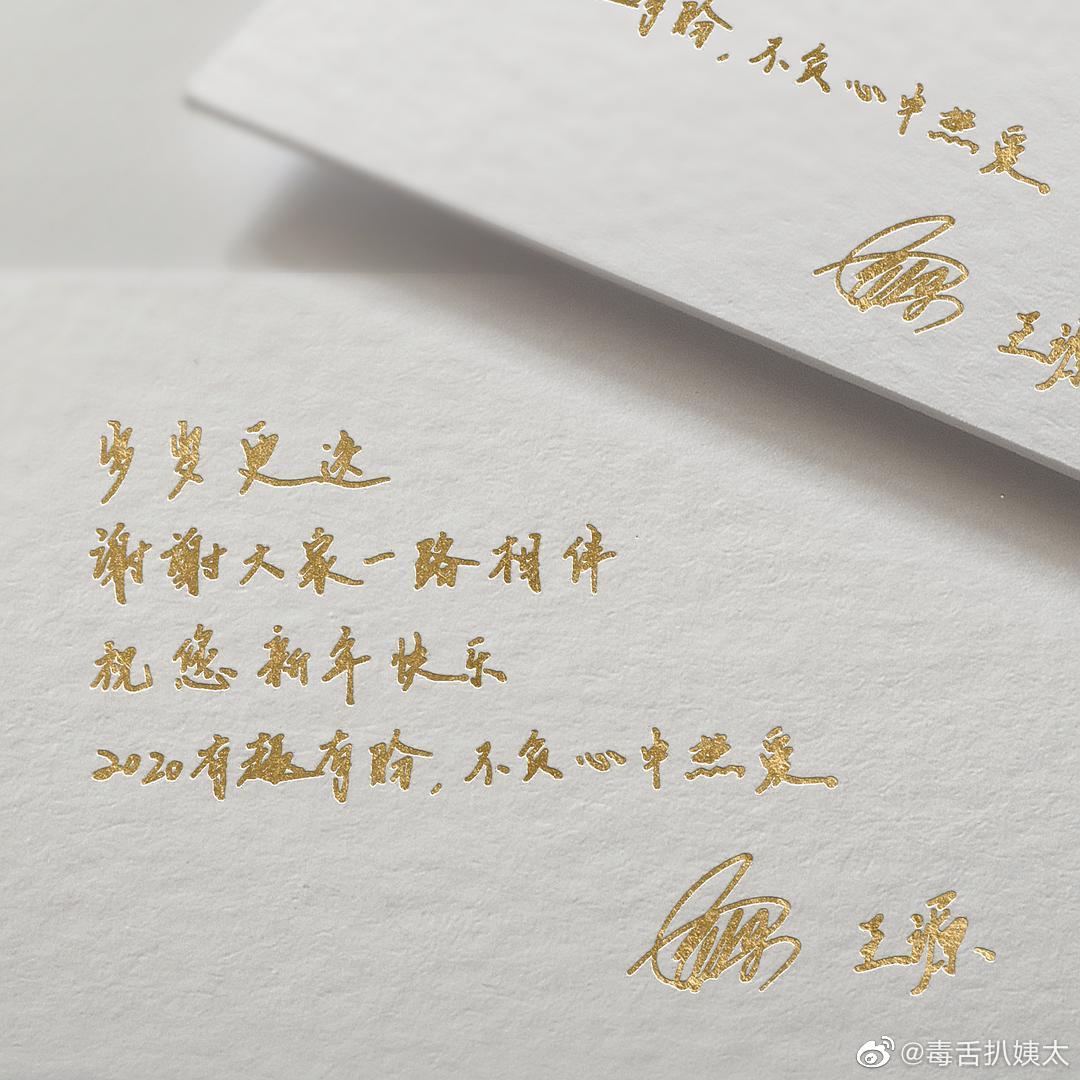 有盼，不负心中热爱
王源
岁岁更迭
谢谢大家一路相伴
祝您新年快乐
2020有趣有盼，不负心中热爱
王源
@毒舌扒姨太